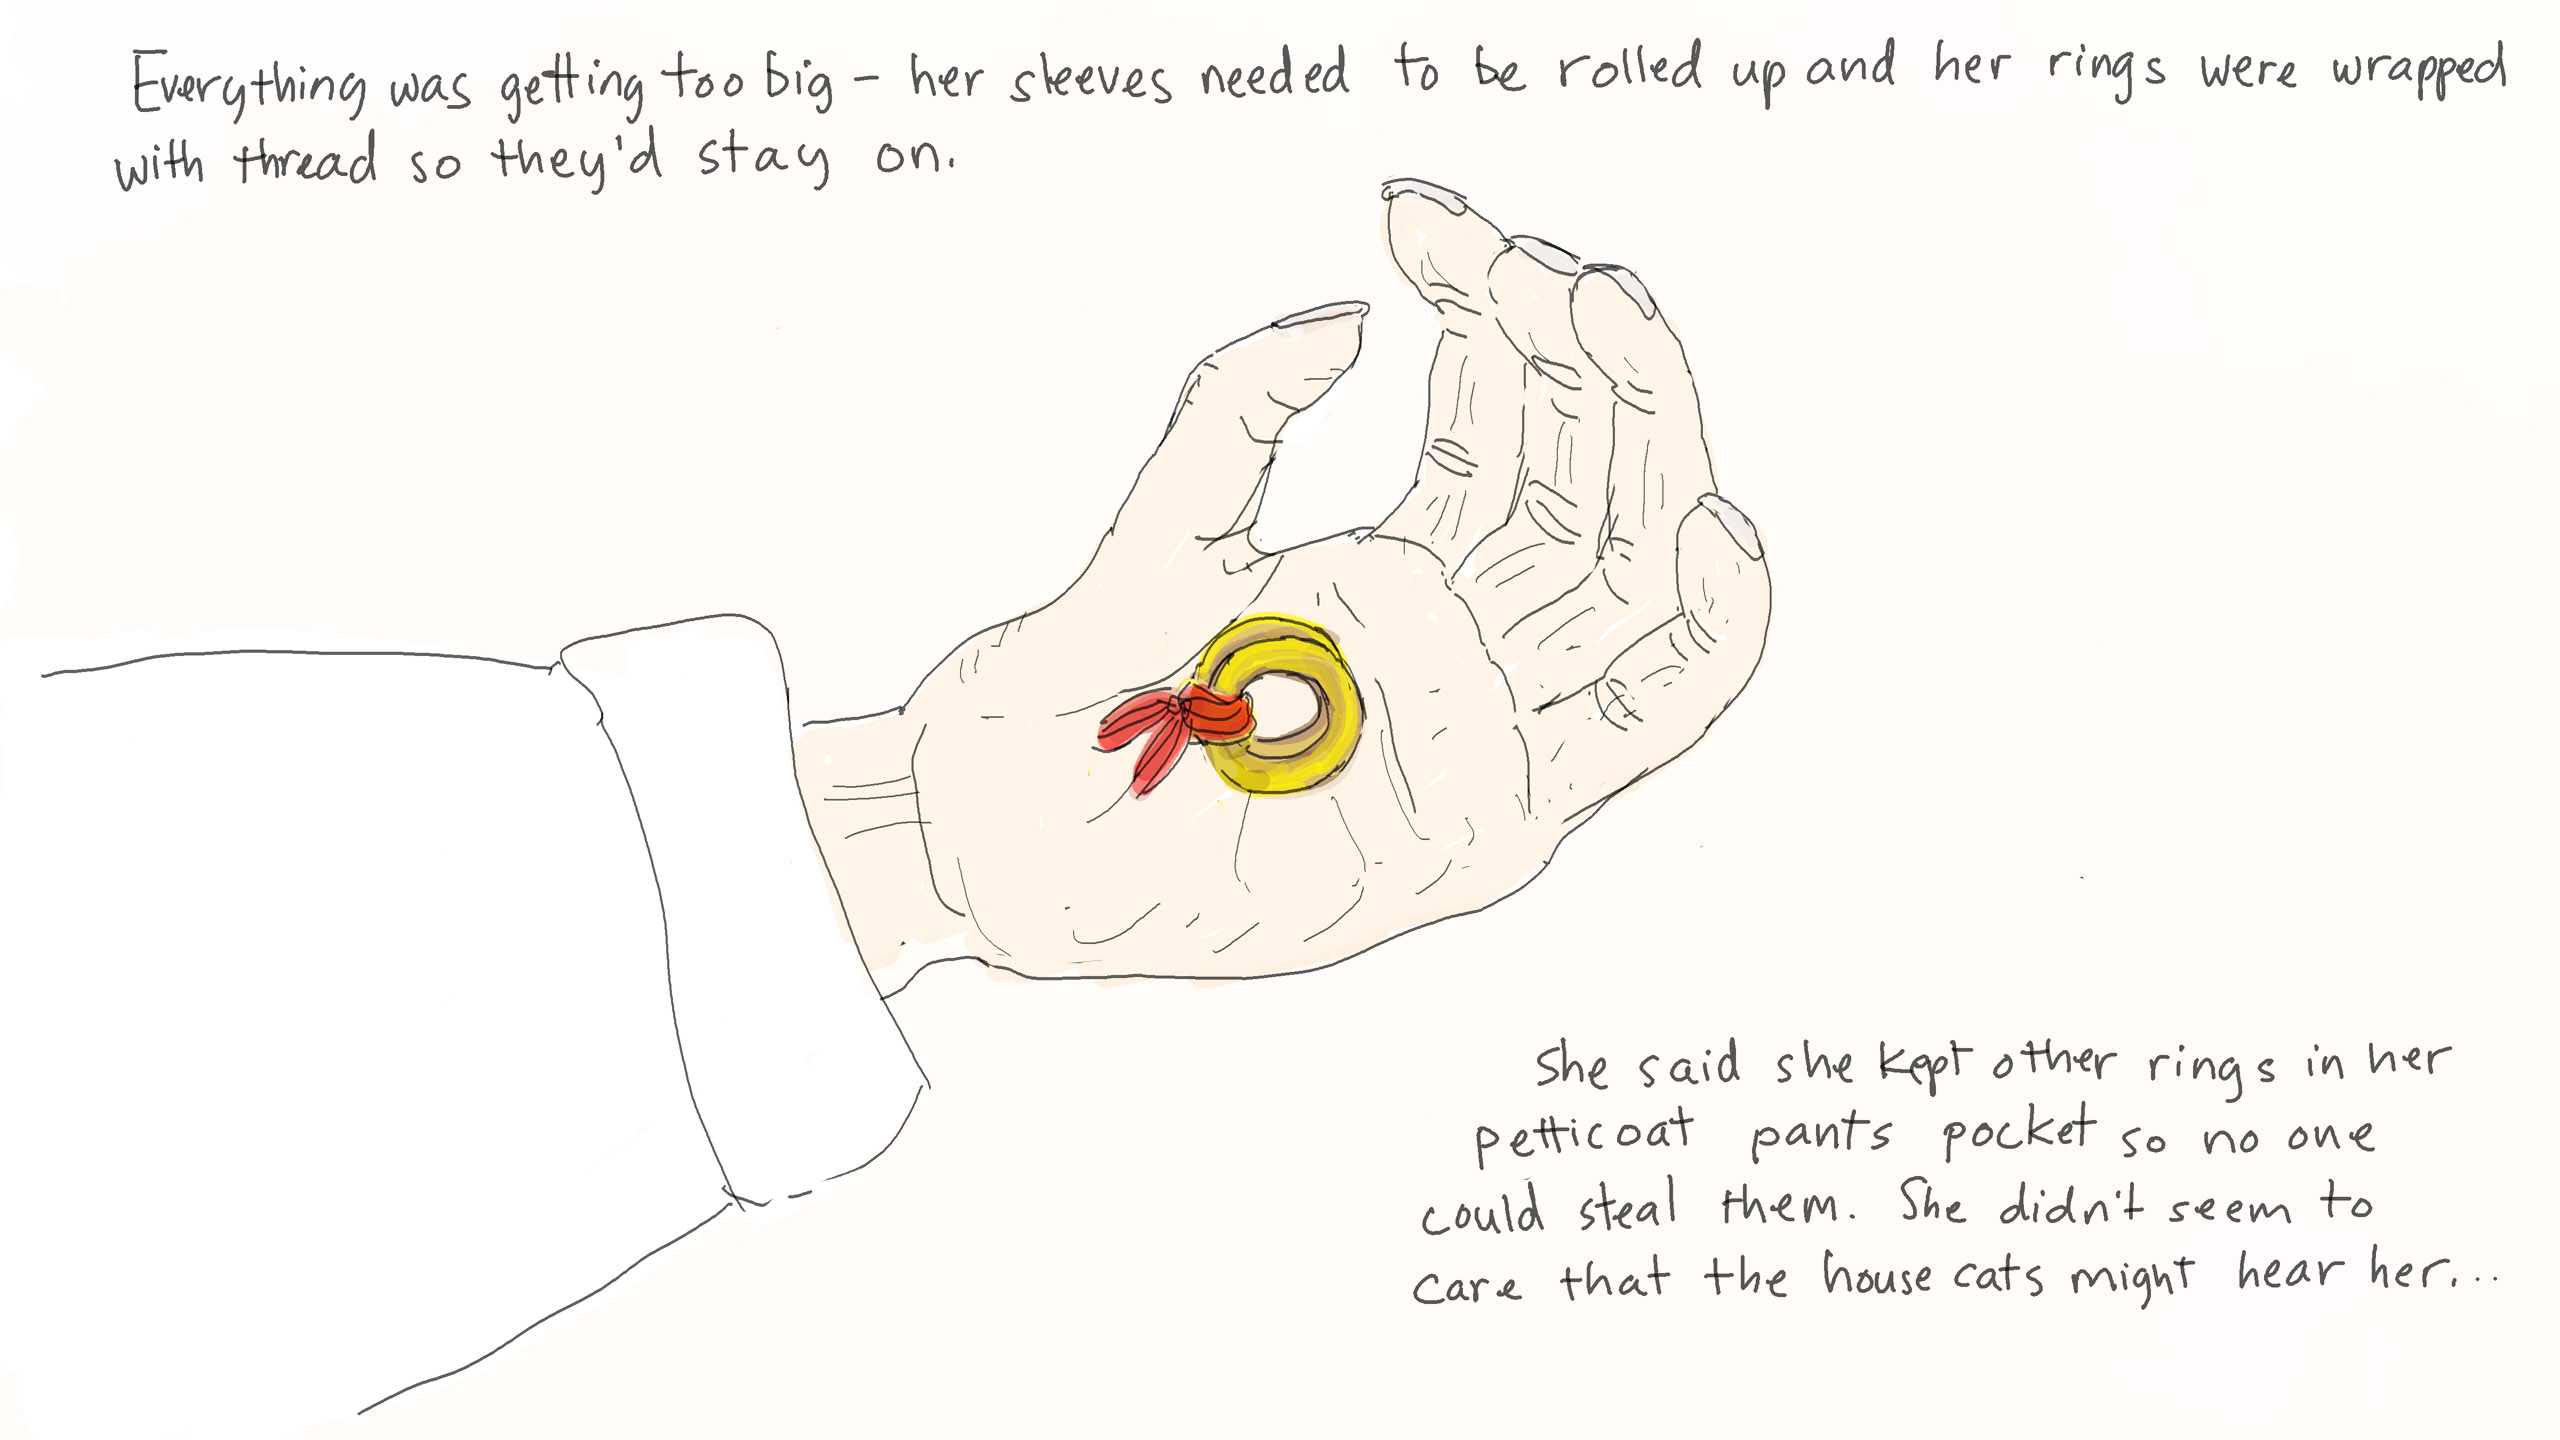 Everything was getting too big - her sleeves needed to be rolled up and her rings were wrapped
with thread so they'd stay on.
She said she kept other rings in her
petticoat pants pocket so no one
could steal them. She didn't seem to
care that the house cats might hear her...